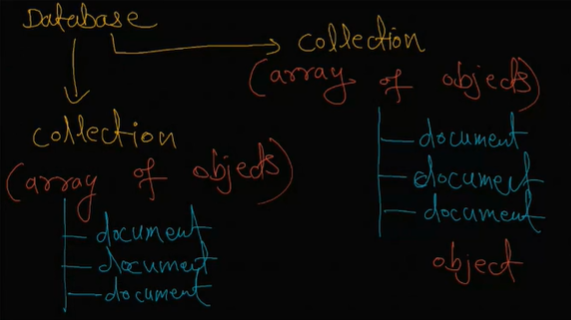 Database
collection
(array of objects)
document
document
document
object
collection
(array of objects)
document
document
document